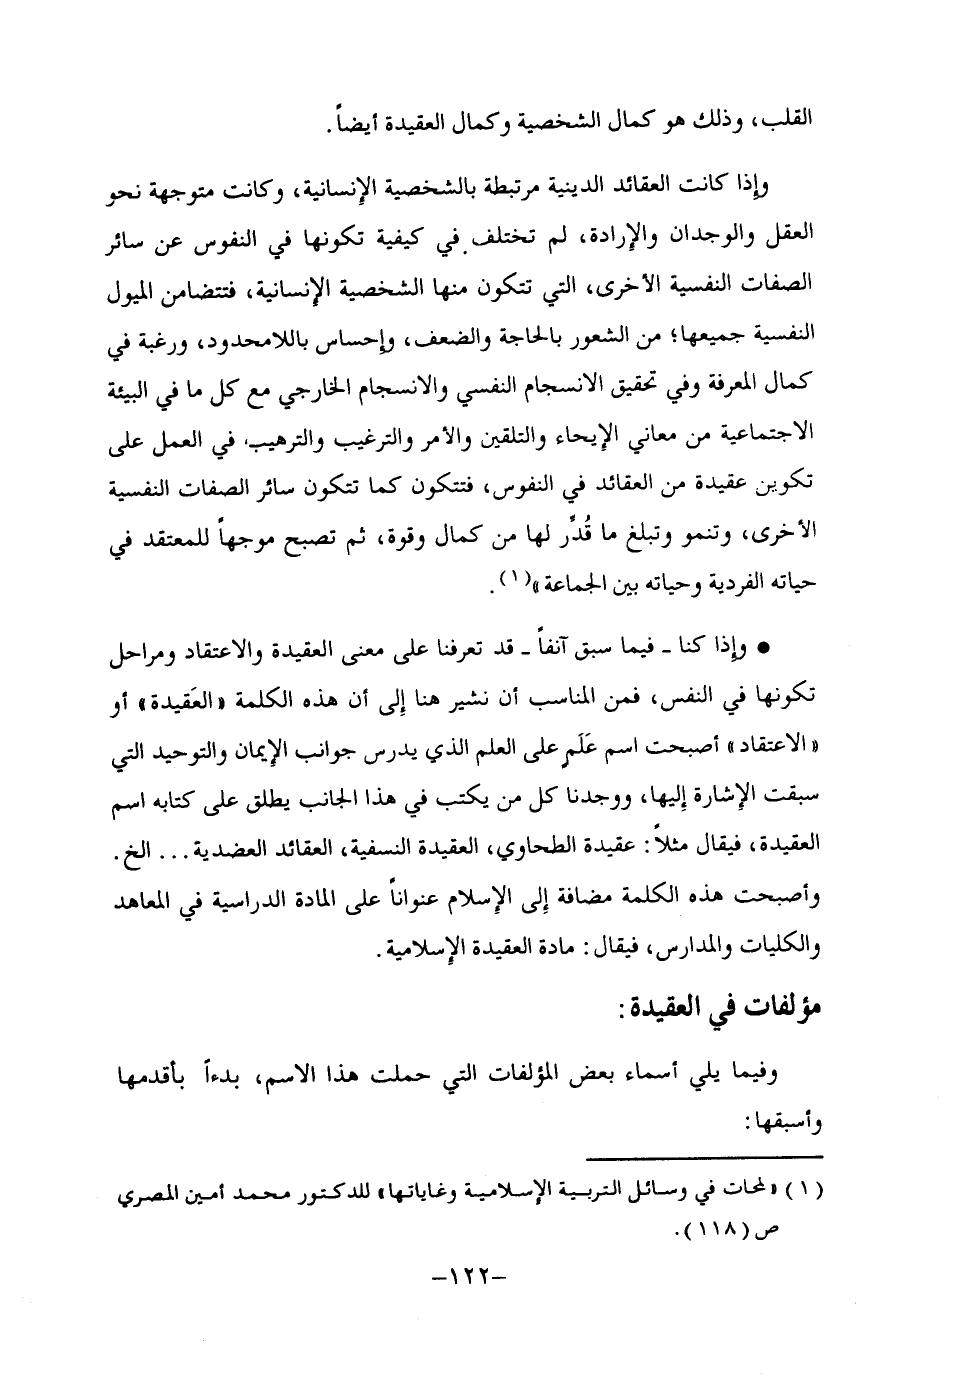 القلب، وذلك هو كمال الشخصية وكمال العقيدة أيضاً.
وإذا كانت العقائد الدينية مرتبطة بالشخصية الإنسانية، وكانت متوجهة نحو
العقل والوجدان والإرادة، لم تختلف في كيفية تكونها في النفوس عن سائر
الصفات النفسية الأخرى، التي تتكون منها الشخصية الإنسانية، فتتضامن الميول
النفسية جميعها؛ من الشعور بالحاجة والضعف، وإحساس باللامحدود، ورغبة في
كمال المعرفة وفي تحقيق الانسجام النفسي والانسجام الخارجي مع كل ما في البيئة
الاجتماعية من معاني الإيحاء والتلقين والأمر والترغيب والترهيب، في العمل على
تكوين عقيدة من العقائد في النفوس، فتتكون كما تتكون سائر الصفات النفسية
الأخرى، وتنمو وتبلغ ما قُدِّر لها من كمال وقوة، ثم تصبح موجهاً للمعتقد في
حياته الفردية وحياته بين الجماعة»(١).
● وإذا كنا ـ فيما سبق آنفاً ـ قد تعرفنا على معنى العقيدة والاعتقاد ومراحل
تكونها في النفس، فمن المناسب أن نشير هنا إلى أن هذه الكلمة «العَقيدة» أو
«الاعتقاد» أصبحت اسم عَلَمٍ على العلم الذي يدرس جوانب الإيمان والتوحيد التي
سبقت الإشارة إليها، ووجدنا كل من يكتب في هذا الجانب يطلق على كتابه اسم
العقيدة، فيقال مثلاً: عقيدة الطحاوي، العقيدة النسفية، العقائد العضدية... الخ.
وأصبحت هذه الكلمة مضافة إلى الإسلام عنواناً على المادة الدراسية في المعاهد
والكليات والمدارس، فيقال: مادة العقيدة الإسلامية.
مؤلفات في العقيدة:
وفيما يلي أسماء بعض المؤلفات التي حملت هذا الاسم، بدءاً بأقدمها
وأسبقها:
(١) «لمحات في وسائل التربية الإسلامية وغاياتها» للدكتور محمد أمين المصري
ص (١١٨).
-١٢٢-